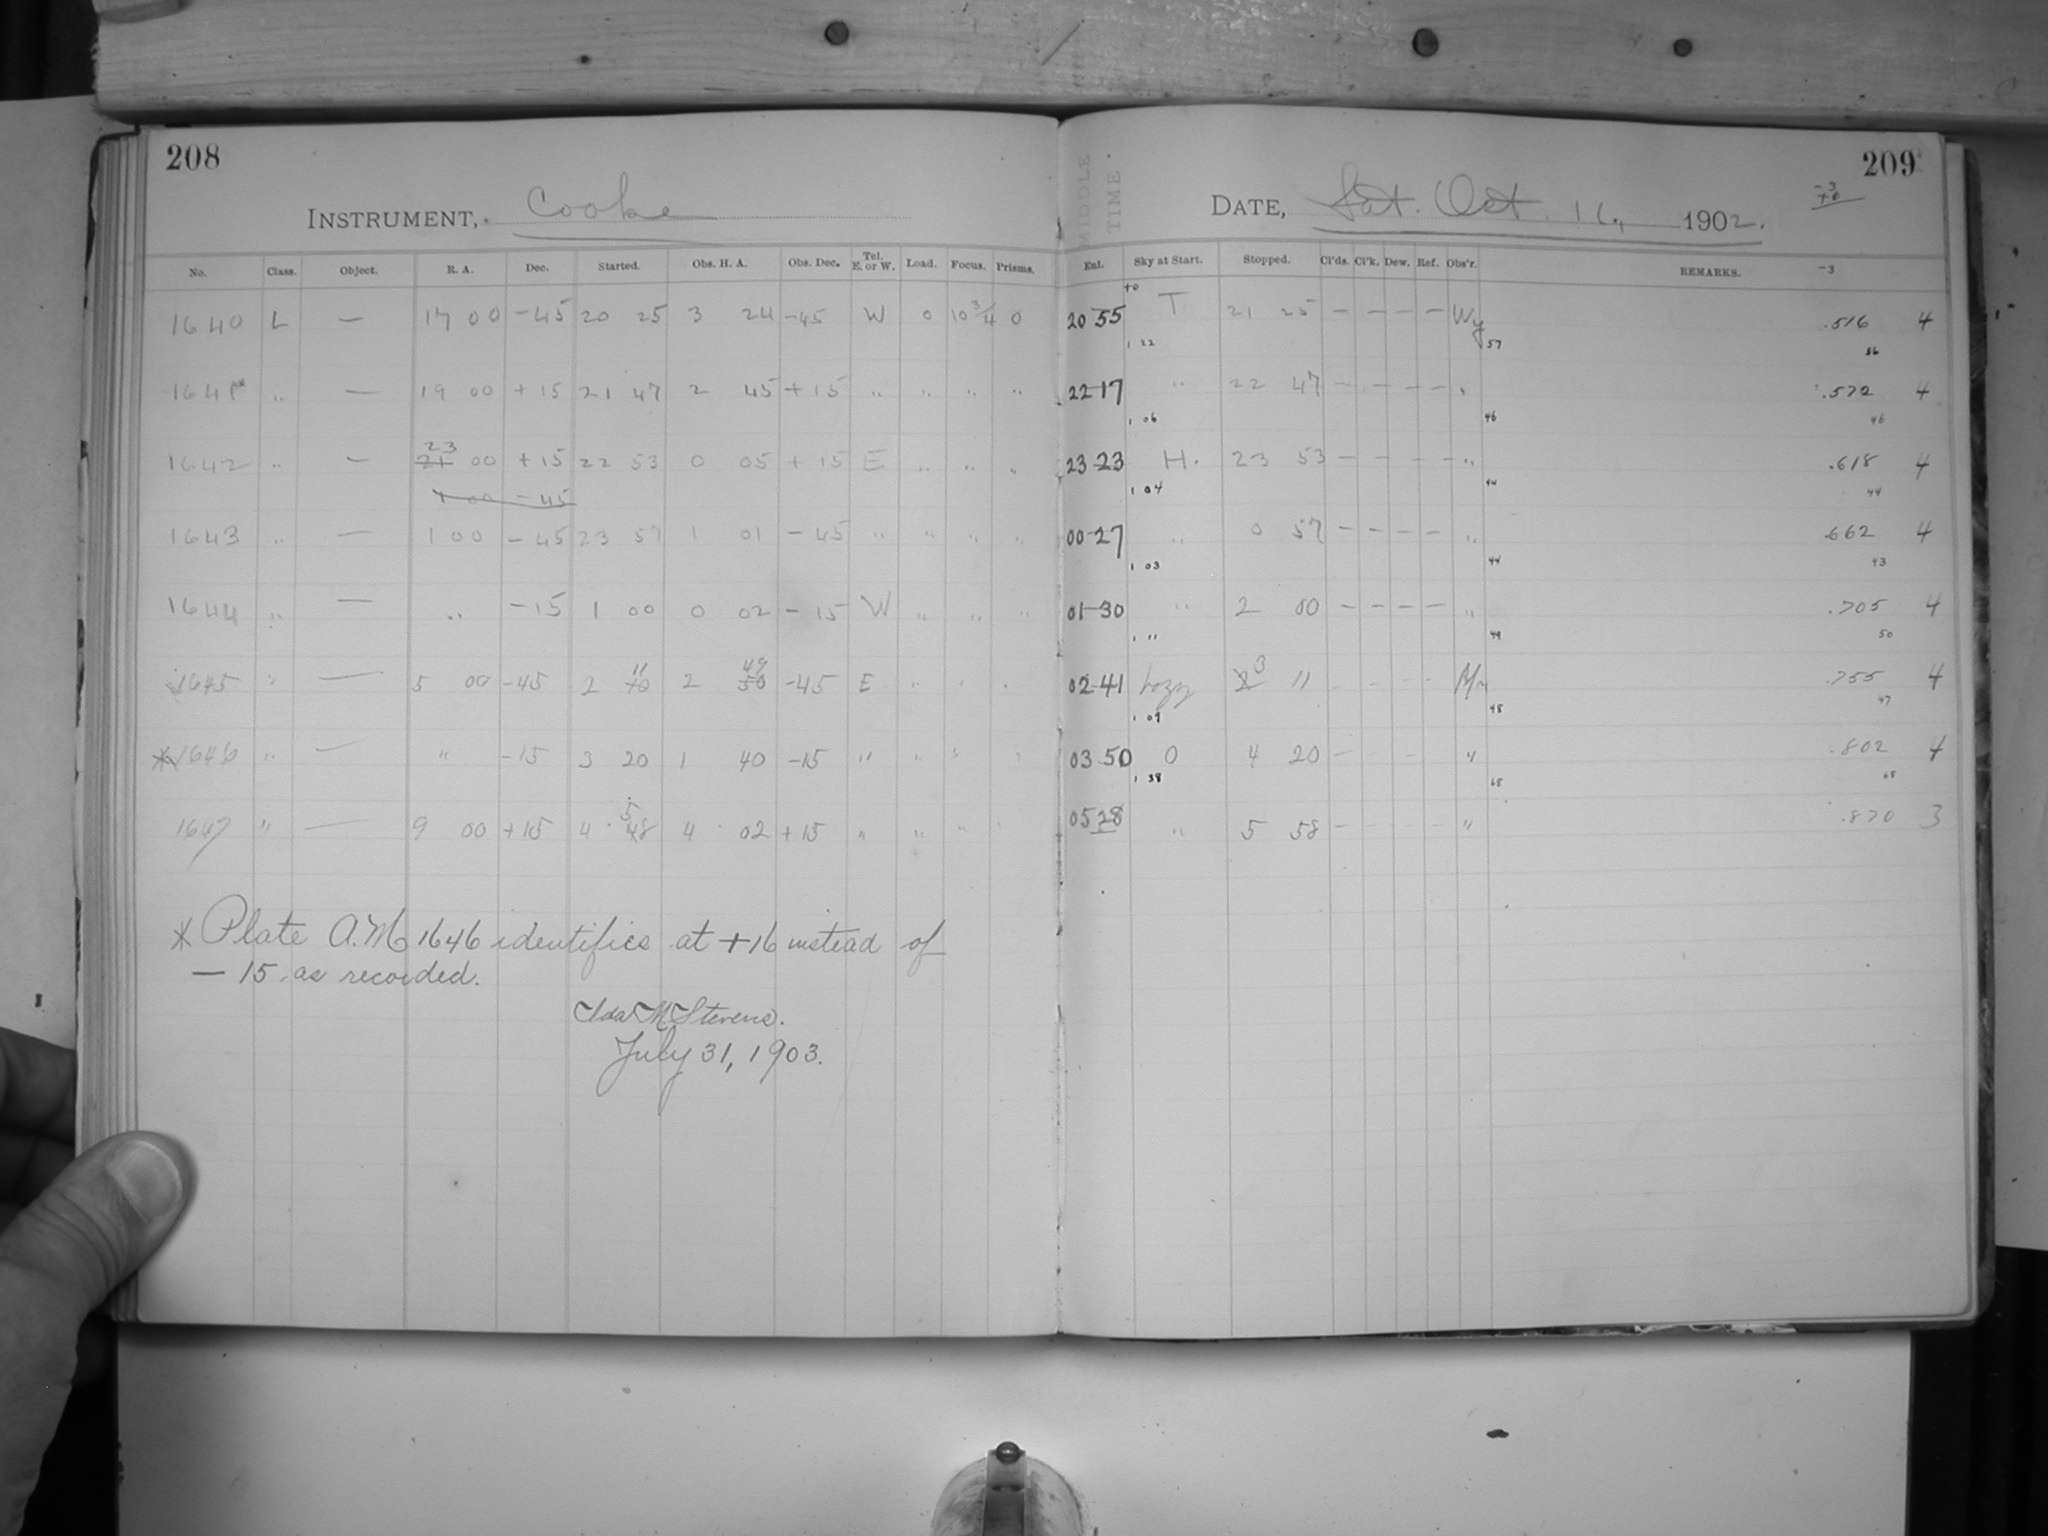 208
INSTRUMENT, Cooke
No. Class. Object. R. A. Dec. Started. Obs. H. A. Obs. Dec. Tel. E. or W. Load. Focus. Prisms.
1640 L — 17 00 -45 20 25 3 24 -45 W 0 10 3/4 0
1641* " — 19 00 +15 21 47 2 45 +15 " " " "
23
1642 " — 21 00 +15 22 53 0 05 +15 E " " "
1 00 -45
1643 " — 1 00 -45 23 57 1 01 -45 " " " "
1644 " — " -15 1 00 0 02 -15 W " " "
11 49
1645 " — 5 00 -45 2 10 2 50 -45 E " " "
*1646 " — " -15 3 20 1 40 -15 " " " "
5
1647 " — 9 00 +15 4 48 4 02 +15 " " " "
* Plate A.M 1646 identifies at +16 instead of
— 15 as recorded.
Ida M Stevens.
July 31, 1903.
209
MIDDLE TIME.
DATE, Sat. Oct. 1902.
-3
+0
Enl. Sky at Start. Stopped. Cl'ds. Cl'k. Dew. Ref. Obs'r. REMARKS. -3
+0
20 55 T 21 25 — — — — Wy .516 4
1 22 57 56
22 17 " 22 47 — — — — " .572 4
1 06 46 46
23 23 H. 23 53 — — — — " .618 4
1 04 44 44
00 27 " 0 57 — — — — " .662 4
1 03 44 43
01 30 " 2 00 — — — — " .705 4
1 11 49 50
3
02 41 hazy 2 11 — — — — .755 4
1 09 48 47
03 50 0 4 20 — — — — " .802 4
1 38 68 68
05 28 " 5 58 — — — — " .870 3